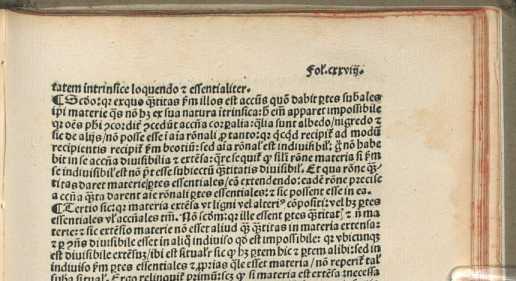 Fol. cxxviij.
tatem intrinsice loquendo ⁊ essentialiter.
¶ Scd̃o: qr exquo q̃titas ẽm illos est accñs quõ dabit ptes subales
ipi materie q̃s nõ hꝫ ex sua natura itrinsica: hͨ em̃ apparet impossibile
qr oẽs phi ꝯcordit ꝯcedũt accña corꝑalia: q̃lia sunt albedo/nigredo ⁊
sic de alijs/nõ posse esse ĩ aĩa rõnali ꝓ tanto: qr q̃cqd recipit̃ ad modũ
recipientis recipit̃ ẽm boetiũ: sed aĩa rõnal' est indiuisibil'. g̃ nõ habe
bit in se accña diuisibilia ⁊ extẽsa: q̃re sequit̃ ꝙ sil'r rõne materia si ẽm
se indiuisibil' est nõ pt esse subiectũ q̃titatis diuisibil'. Et qua rõne q̃
titas daret materie ptes essentiales/eã extendendo: eadẽ rõne precise
a accña q̃nta darent aĩe rõnali ptes essentiales: ⁊ sic possent esse in ea.
¶ Tertio sic: qr materia extẽsa vt ligni vel alteri⁹ cõpositi: vel hꝫ ptes
essentiales vl' accñales tm̃. Nõ scd̃m: qr ille essent ptes q̃titat̃, ⁊ nõ ma
terie: ⁊ sic extẽsio materie nõ esset aliud q̃ꝫ q̃titas in materia extensa:
⁊ p ꝯñs diuisibile esset in aliq̃ indiuiso qd̃ est impossibile: qr vbicunqꝫ
est diuisibile extẽsuꝫ/ibi est situal': sic ꝙ hꝫ ptem hic ⁊ ptem alibi: sed in
indiuiso ẽm ptes essentiales ⁊ ꝓprias q̃le esset materia/nõ reperit̃ tal'
Ergo relinquit̃ primũ: scꝫ ꝙ si materia est extẽsa: necessa